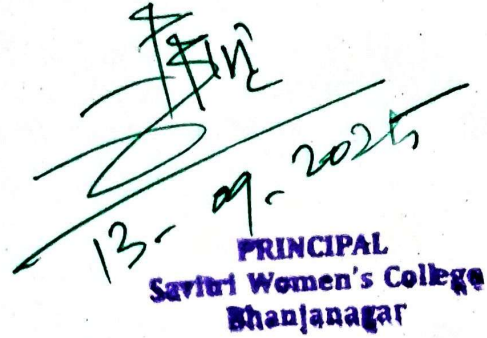 13-09-2025
PRINCIPAL
Savitri Women's College
Bhanjanagar